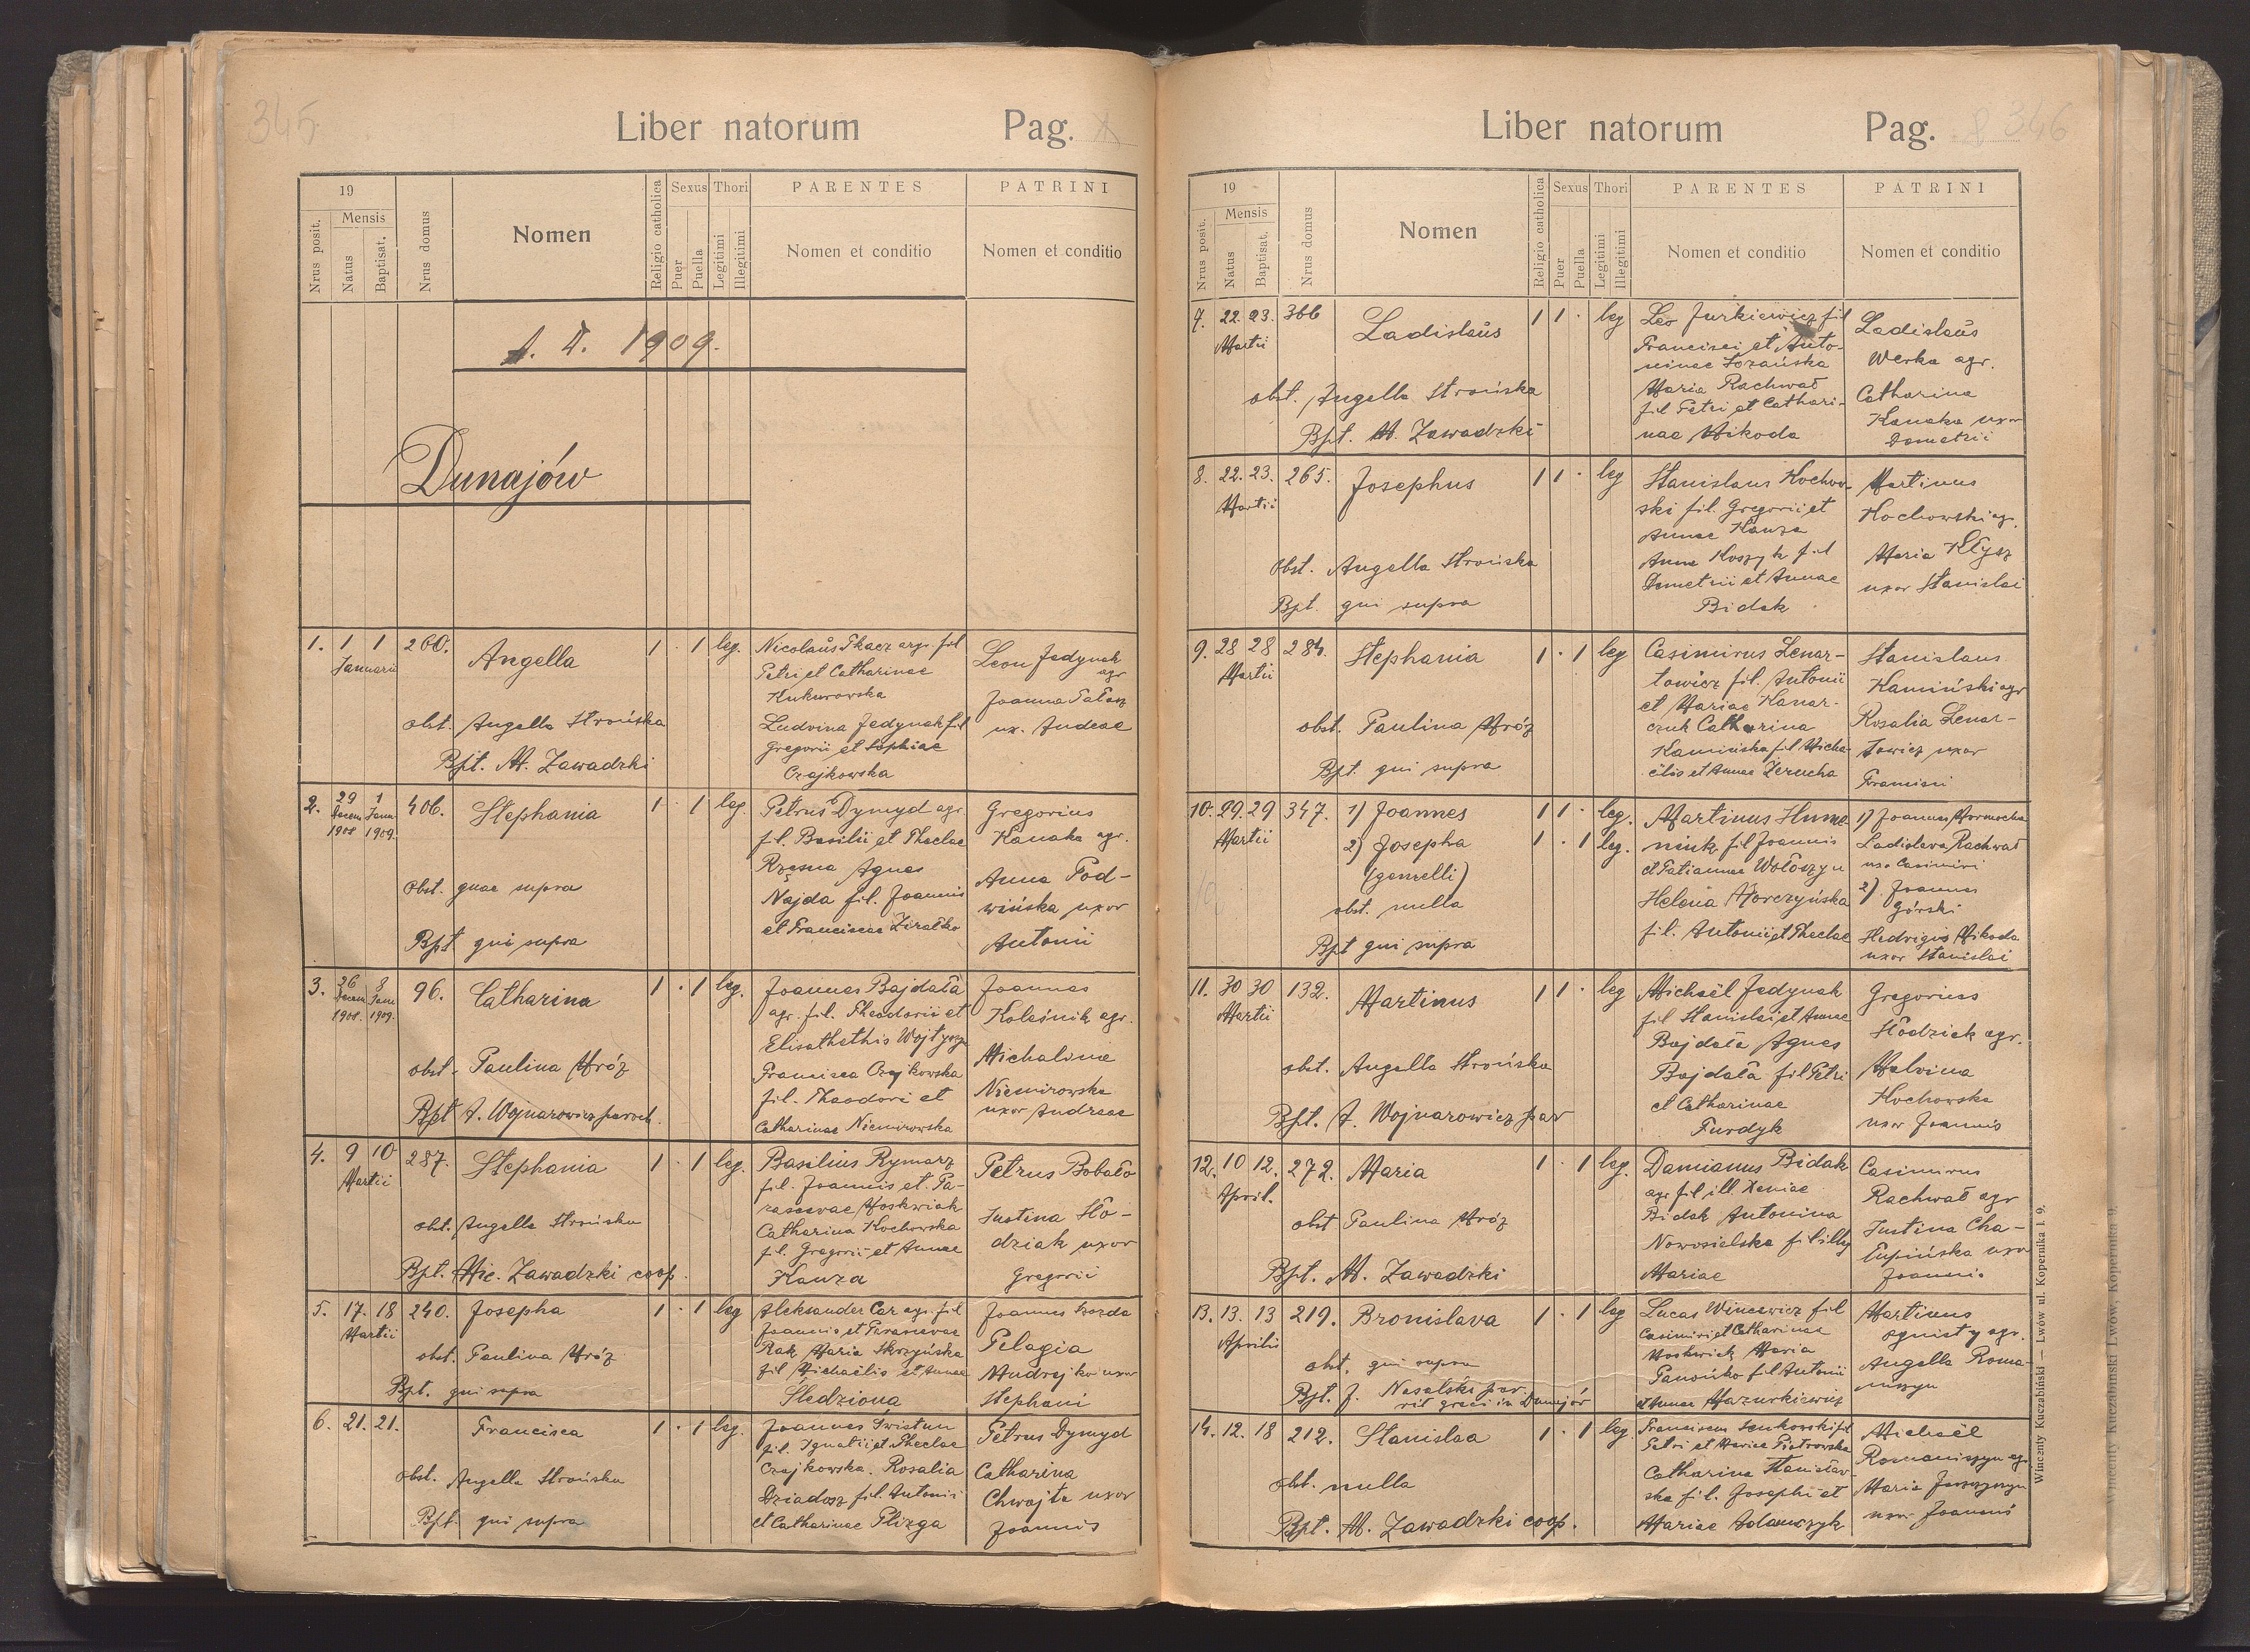 345
Liber natorum Pag.
19
Mensis
Nrus posit.
Natus
Baptisat.
Nrus domus
Nomen
Religio catholica
Sexus
Puer
Puella
Thori
Legitimi
Illegitimi
PARENTES
Nomen et conditio
PATRINI
Nomen et conditio
A. D. 1909.
Dunajów
1. 1 1 260. Angella 1 · 1 leg.
Januarii
obst. Angella Strońska
Bpt. M. Zawadzki
Nicolaus Tkacz agr. fil
Petri et Catharinae
Kukurowska
Ludovina Jedynak fil
Gregorii et Sophiae
Czajkowska
Leon Jedynak
agr
Joanna Pałasz
ux. Andreae
2. 29 1 406. Stephania 1 · 1 leg.
Decem Janu
1908 1909.
Obst. quae supra
Bpt qui supra
Petrus Dymyd agr.
fil. Basilii et Theclae
Rzesna Agnes
Najda fil. Joannis
et Franciscae Ziratko
Gregorius
Kanaka agr.
Anna Pod-
wińska uxor
Antonii
3. 26 8 96. Catharina 1 · 1 leg.
Decem Janu
1908. 1909.
obst. Paulina Mróz
Bpt A. Wojnarowicz paroch.
Joannes Bajdała
agr. fil. Theodorii et
Elisathethis
Francisca Czajkowska
fil. Theodori et
Catharinae Niemirowska
Joannes
Koleśnik agr.
Michalina
Niemirowska
uxor Andreae
4. 9 10 287. Stephania 1 · 1 leg.
Martii
obst. Angella Strońska
Bpt. Mic. Zawadzki coop.
Basilius Rymarz
fil. Joannis et Pa-
rascevae Moskwiak
Catharina Kochowska
fil. Gregorii et Annae
Kanza
Petrus Bobało
Justina Sło-
dziak uxor
Gregorii
5. 17. 18 240. Josepha 1 · 1 leg
Martii
obst. Paulina Mróz
Bpt. qui supra
Aleksander Car agr. fil
Joannis et Parascevae
Rak Maria Skrzyńska
fil Michaëlis et Annae
Śledziona
Joannes
Pelagia
Andrejko uxor
Stephani
6. 21. 21. Francisca 1 · 1 leg.
obst. Angella Strońska
Bpt. qui supra
Joannes Świstun
fil. Ignatii et Theclae
Czajkowska. Rosalia
Dziadosz fil. Antonii
et Catharinae Plizga
Petrus Dymyd
Catharina
Chwojta uxor
Joannis
346
Liber natorum Pag. 8
19
Mensis
Nrus posit.
Natus
Baptisat.
Nrus domus
Nomen
Religio catholica
Sexus
Puer
Puella
Thori
Legitimi
Illegitimi
PARENTES
Nomen et conditio
PATRINI
Nomen et conditio
7. 22. 23. 366 Ladislaus 1 1 · leg
Martii
obst. Angella Strońska
Bpt. M. Zawadzki
Leo Jurkiewicz fil
Francisci et Anto-
ninae Łozańska
Maria Rachwał
fil Petri et Cathari-
nae Mikoda
Ladislaus
Werka agr.
Catharina
Kanaka uxor
Demetrii
8. 22. 23. 265. Josephus 1 1 · leg
Martii
Obst. Angella Strońska
Bpt. qui supra
Stanislaus Kochow-
ski fil. Gregorii et
Annae Kanza
Anna Koszyk fil
Demetrii et Annae
Bidak
Martinus
Kochowski agr.
Maria Kłysz
uxor Stanislai
9. 28 28 284. Stephania 1 · 1 leg
Martii
obst. Paulina Mróz
Bpt. qui supra
Casimirus Lenar-
towicz fil. Antonii
et Mariae Kanar-
czuk Catharina
Kamińska fil Micha-
ëlis et Annae Zerucha
Stanislaus
Kamiński agr
Rosalia Lenar-
towicz uxor
Francisci
10. 29. 29 347. 1) Joannes 1 1 · leg.
Martii 2) Josepha 1 · 1 leg.
(gemelli)
obst. nulla
Bpt qui supra
Martinus Hume-
niuk fil Joannis
et Tatiannae Wołoszyn
Helena Morczyńska
fil. Antonii et Theclae
1) Joannes
Ladislava Rachwał
ux. Casimiri
2) Joannes
Górski
Hedvigis Mikoda
uxor Stanislai
11. 30 30 132. Martinus 1 1 · leg
Martii
obst. Angella Strońska
Bpt. A. Wojnarowicz par
Michaël Jedynak
fil Stanislai et Annae
Bajdała Agnes
Bajdała fil Petri
et Catharinae
Furdyk
Gregorius
Słodziak agr.
Malvina
Kochowska
uxor Joannis
12. 10 12. 272. Maria 1 · 1 leg.
April.
obst Paulina Mróz
Bpt. M. Zawadzki
Damianus Bidak
agr fil ill. Xeniae
Bidak Antonina
Nowosielska fil illeg
Mariae
Casimirus
Rachwał agr
Justina Cha-
łupińska uxor
Joannis
13. 13. 13 219. Bronislava 1 · 1 leg
Aprilis
obst. qui supra
Bpt. J. Nasalski par.
rit graeci in Dunajów
Lucas Wincewicz fil
Casimiri et Catharinae
Moskwiak Maria
Panońko fil Antonii
et Annae Mazurkiewicz
Martinus
Ognisty agr.
Angella Roma-
niszyn
14. 12. 18 212. Stanislaa 1 · 1 leg.
obst. nulla
Bpt. M. Zawadzki coop.
Franciscus Senkowski fil
Petri et Mariae Piotrowska
Catharina Stanisław-
ska fil. Josephi et
Mariae Adamczyk
Michaël
Romaniszyn agr.
Maria
uxor Joannis
Winczenty Kuczabiński — Lwów ul. Kopernika l. 9.